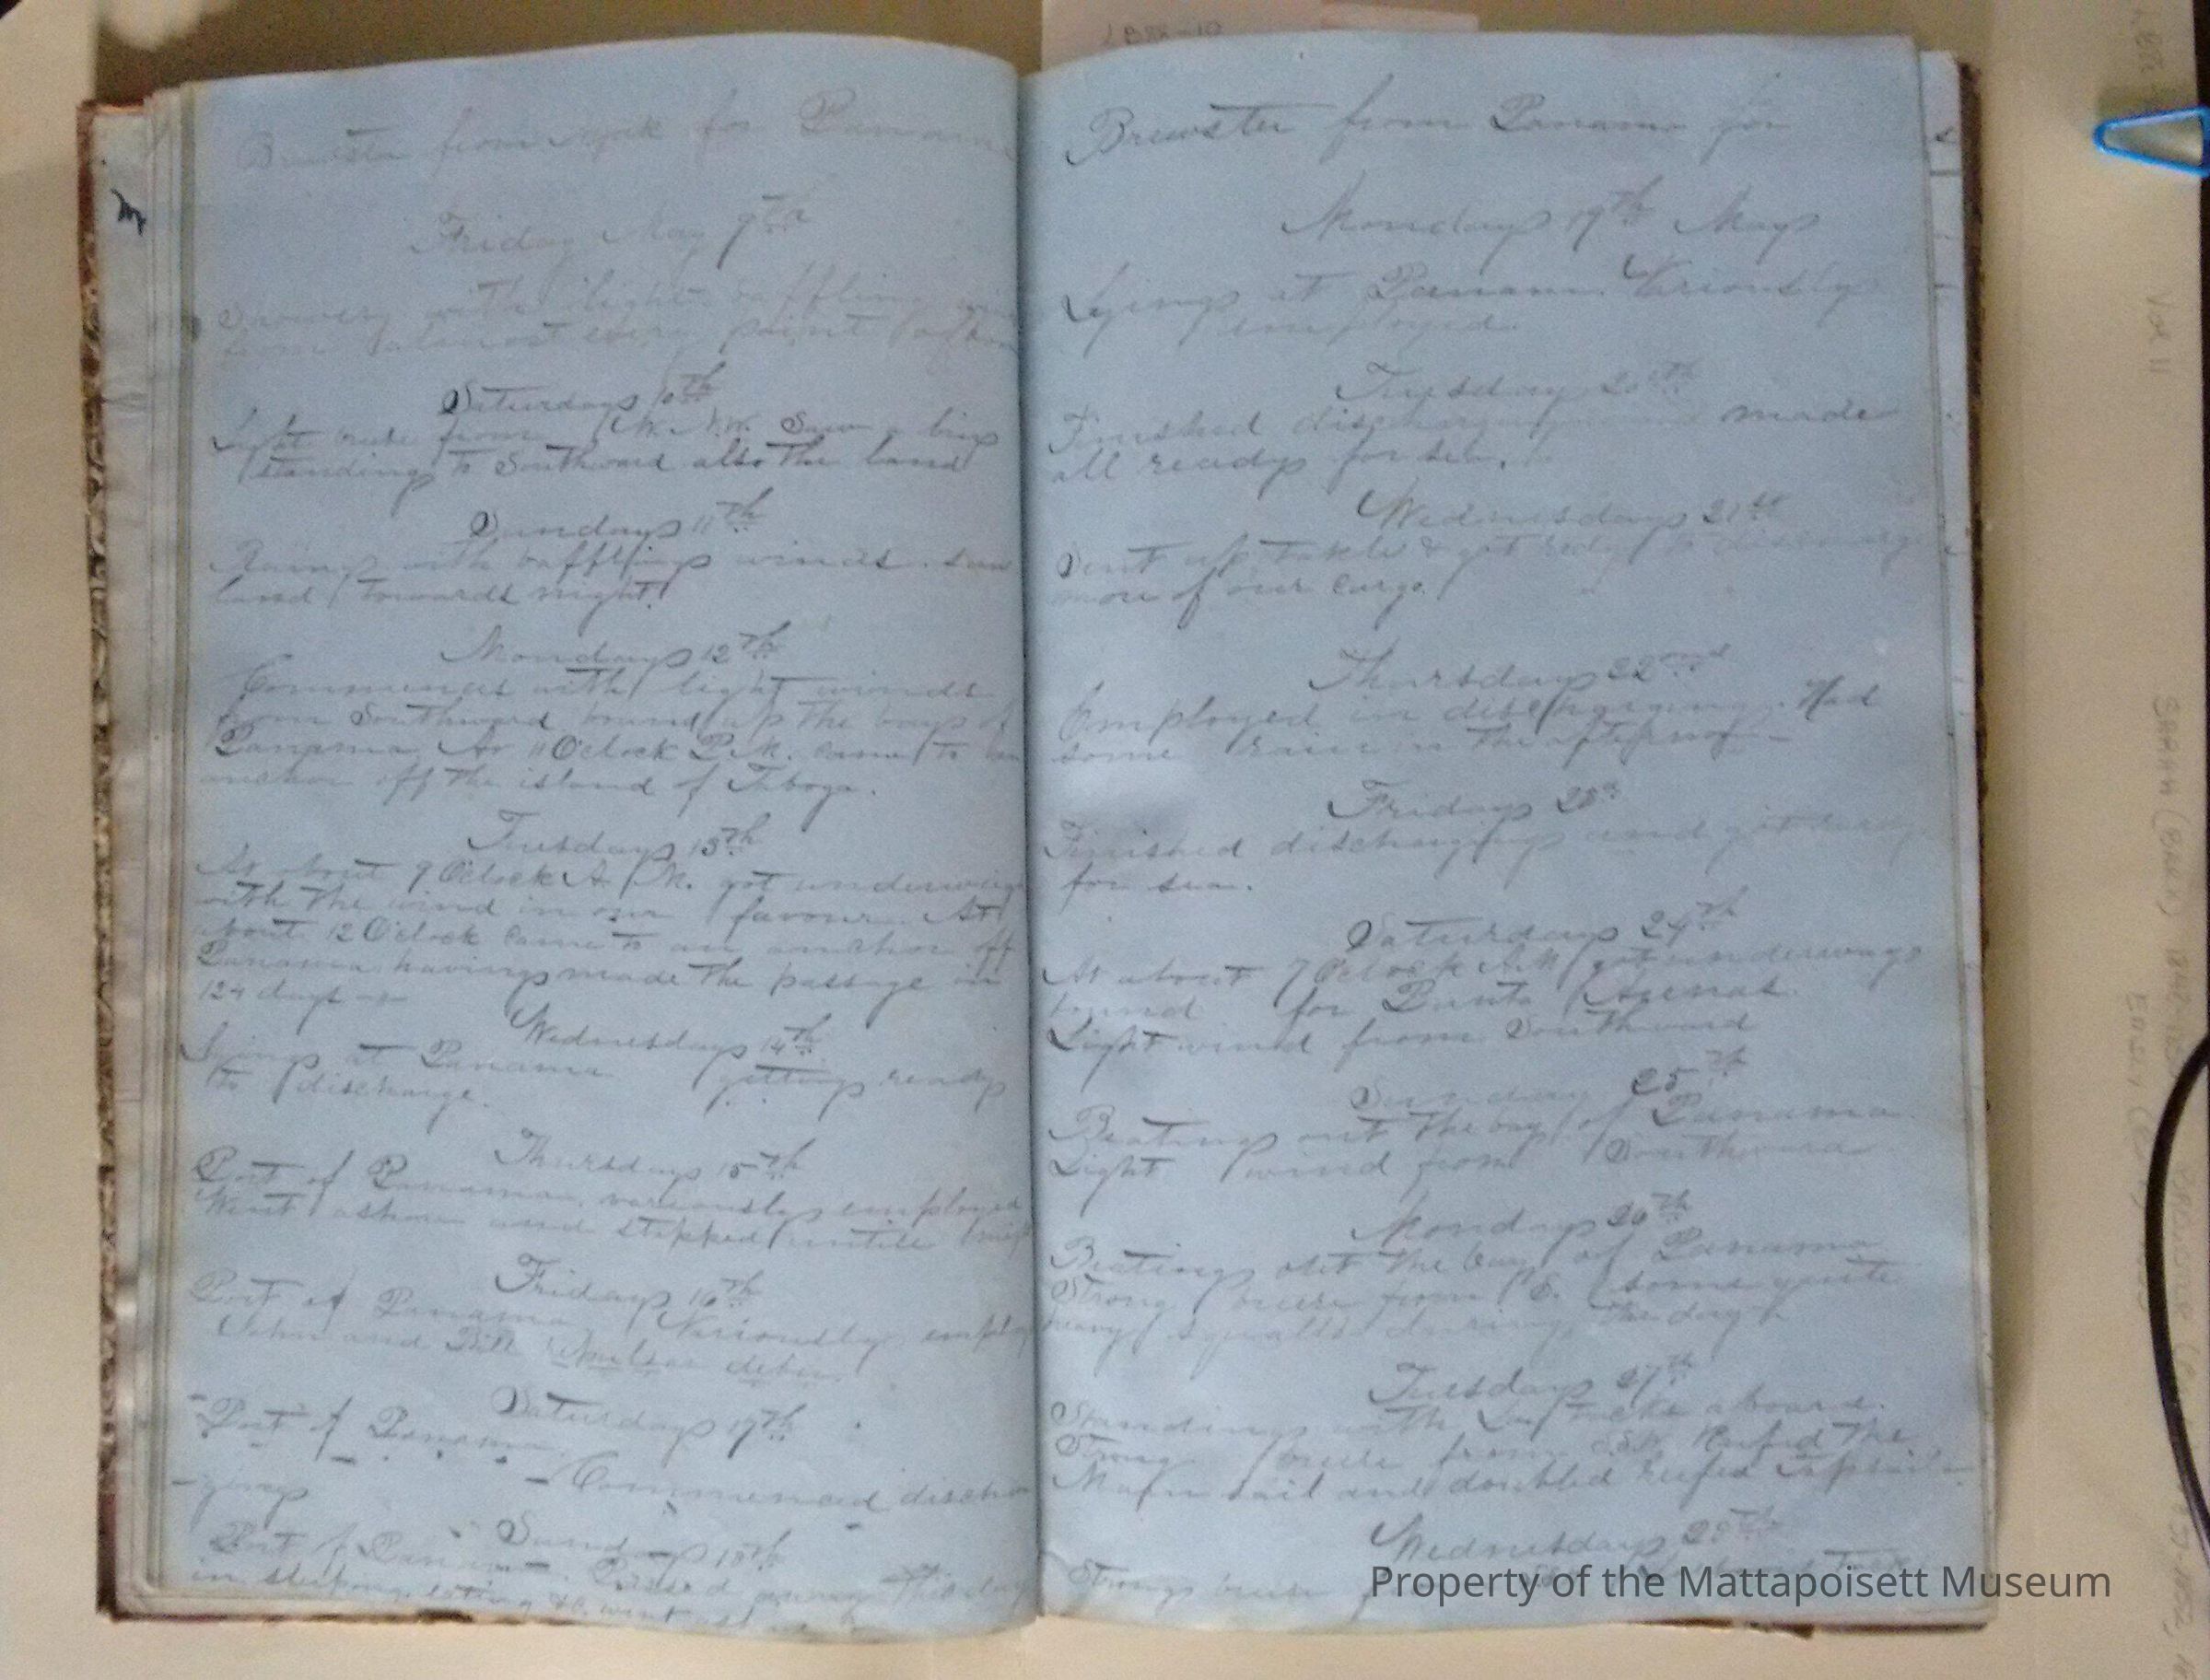 LB88-10
Brewster from N York for Panama
Friday May 9th
Showery with light baffling
from almost every point of
Saturday 10th
Light breeze from W.N.W. Saw a brig
standing to Southward also the land
Sunday 11th
Rainy with baffling winds. saw
land towards night.
Monday 12th
Commences with light winds
from Southward bound up the bay of
Panama. At 11 Oclock P.M. came to an
anchor off the island of Taboga.
Tuesday 13th
At about 9 Oclock A.M. got underway
with the wind in our favour. At
about 12 Oclock came to an anchor off
Panama having made the passage in
124 days
Wednesday 14th
Lying at Panama getting ready
to discharge.
Thursday 15th
Port of Panama variously employed
Went ashore and stopped untill
Friday 16th
Port of Panama Variously employ
John and Bill
Saturday 17th
Port of Panama
- Commenced discha
-ging
Sunday 18th
Port of Panama. Passed away this day
in sleeping eating &c went
Brewster from Panama for
Monday 19th May
Lying at Panama. Variously
employed.
Tuesday 20th
Finished discharging made
all ready for sea.
Wednesday 21st
Sent up takls & got redy to discharge
more of our cargo.
Thursday 22nd
Employed in discharging. Had
some rain in the afternoon
Friday 23d
Finished discharging and got ready
for sea.
Saturday 24th
At about 7 Oclock A.M. got underway
bound for Punta Arenas.
Light wind from Southward
Sunday 25th
Beating out the bay of Panama.
Light wind from Southward
Monday 26th
Beating out the bay of Panama
Strong breeze from S. some quite
heavy squalls during the day
Tuesday 27th
Standing with tacks aboard.
Strong breeze from S.S.W. Reefed the
Main sail and doubled reefed Topsails
Wednesday 28th
Strong breeze
Property of the Mattapoisett Museum